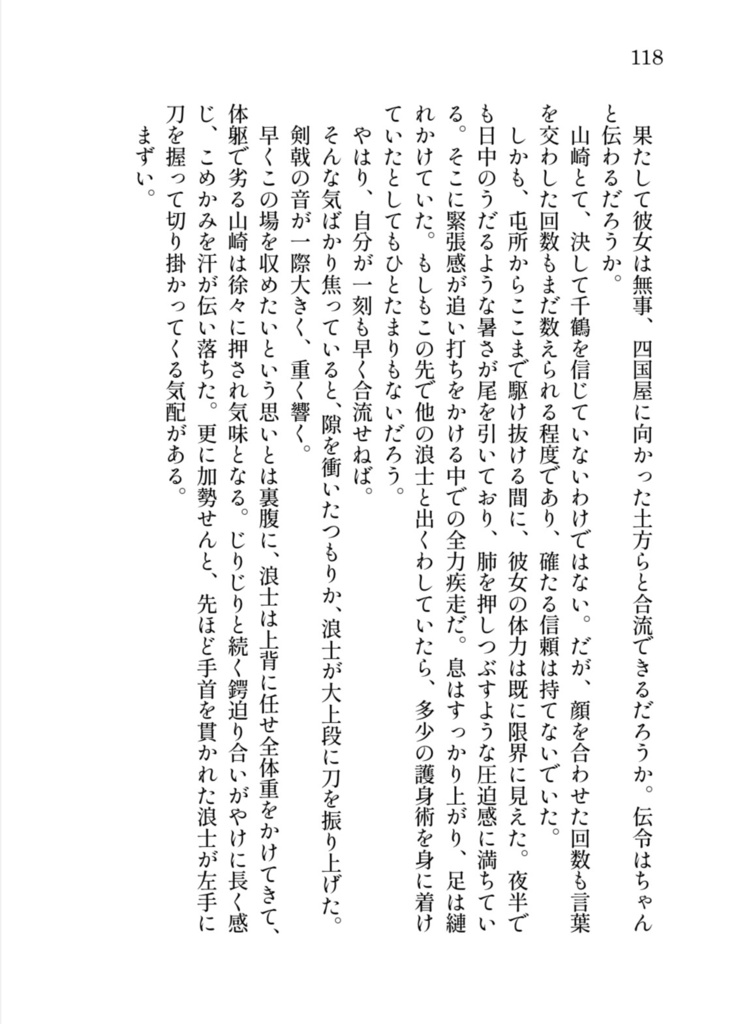 118
果たして彼女は無事、四国屋に向かった土方らと合流できるだろうか。伝令はちゃん
と伝わるだろうか。
山崎とて、決して千鶴を信じていないわけではない。だが、顔を合わせた回数も言葉
を交わした回数もまだ数えられる程度であり、確たる信頼は持てないでいた。
しかも、屯所からここまで駆け抜ける間に、彼女の体力は既に限界に見えた。夜半で
も日中のうだるような暑さが尾を引いており、肺を押しつぶすような圧迫感に満ちてい
る。そこに緊張感が追い打ちをかける中での全力疾走だ。息はすっかり上がり、足は縺
れかけていた。もしもこの先で他の浪士と出くわしていたら、多少の護身術を身に着け
ていたとしてもひとたまりもないだろう。
やはり、自分が一刻も早く合流せねば。
そんな気ばかり焦っていると、隙を衝いたつもりか、浪士が大上段に刀を振り上げた。
剣戟の音が一際大きく、重く響く。
早くこの場を収めたいという思いとは裏腹に、浪士は上背に任せ全体重をかけてきて、
体躯で劣る山崎は徐々に押され気味となる。じりじりと続く鍔迫り合いがやけに長く感
じ、こめかみを汗が伝い落ちた。更に加勢せんと、先ほど手首を貫かれた浪士が左手に
刀を握って切り掛かってくる気配がある。
まずい。